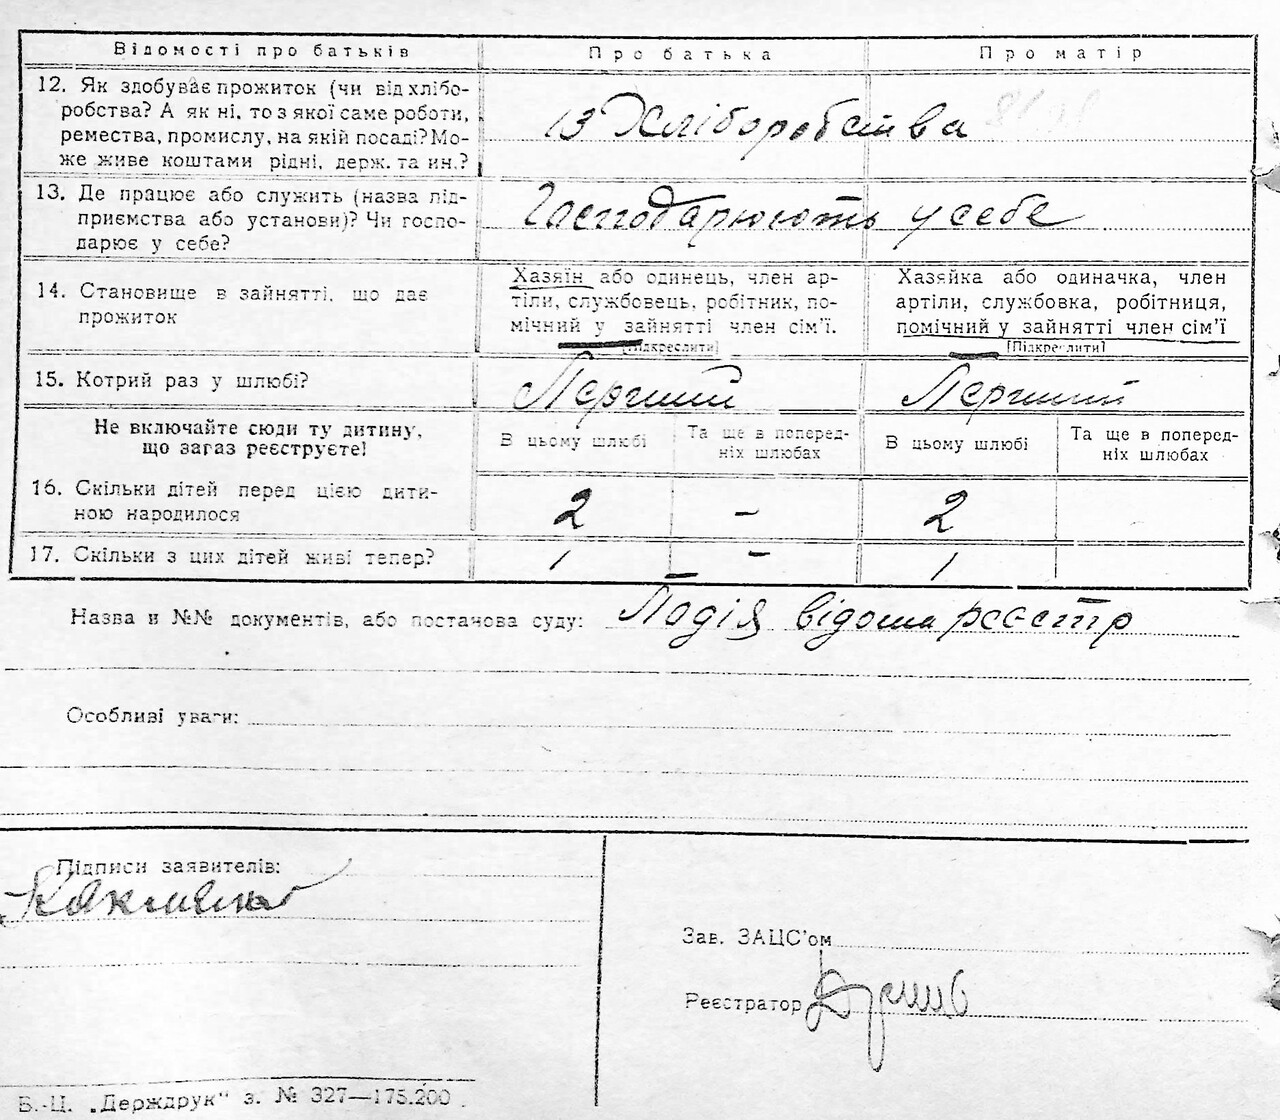 Відомості про батьків Про батька Про матір
12. Як здобуває прожиток (чи від хлібо-
робства? А як ні, то з якої саме роботи,
ремества, промислу, на якій посаді? Мо-
же живе коштами рідні, держ. та ин.?
із Хліборобства
13. Де працює або служить (назва під-
приємства або установи)? Чи госпо-
дарює у себе?
Господарюють у себе
14. Становище в зайнятті, що дає
прожиток
Хазяїн або одинець, член ар-
тіли, службовець, робітник, по-
мічний у зайнятті член сім'ї.
[Підкреслити]
Хазяйка або одиначка, член
артіли, службовка, робітниця,
помічний у зайнятті член сім'ї
[Підкреслити]
15. Котрий раз у шлюбі? Перший Перший
Не включайте сюди ту дитину,
що зараз реєструєте!
В цьому шлюбі
Та ще в поперед-
ніх шлюбах
В цьому шлюбі
Та ще в поперед-
ніх шлюбах
16. Скільки дітей перед цією дити-
ною народилося
2 - 2
17. Скільки з цих дітей живі тепер? 1 - 1
Назва и №№ документів, або постанова суду: Подія відома реєстр
Особливі уваги:
Підписи заявителів:
Зав. ЗАЦС'ом
Реєстратор
Б.-Ц. „Держдрук“ з. № 327—175.200